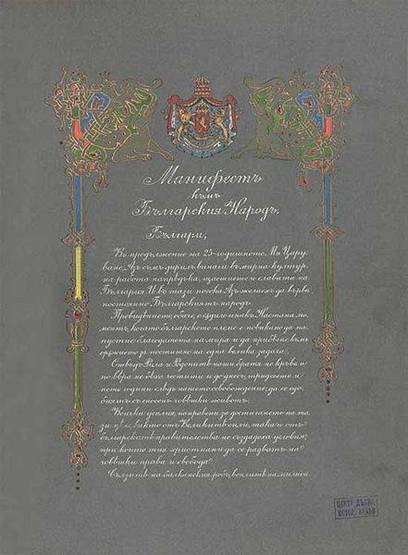 Манифестъ
към
Българския Народъ.
Българи,
Въ продължение на 25-годишното Ми Цару-
ване Азъ съмъ дирилъ винаги въ мирна култур-
на работа напредъка, щастието и славата на
България. И въ тази посока Азъ желаехъ да върви
постоянно Българскиятъ народъ.
Провидението, обаче, отсѫди инакъ. Настана мо-
ментъ, когато българското племе е повикано да на-
пустне благодатта на мира и да прибѣгне към
орѫжието за постигане на една велика задача.
Отвъдъ Рила и Родопитѣ наши братя по кръвь и
по вѣра не бѣха честити и до днесъ, тридесеть и
петь години слѣдъ нашето освобождение, да се до-
биятъ съ сносенъ човѣшки животъ.
Всички усилия, направени за достигане на та-
зи цѣль, както отъ Великитѣ сили, така и отъ
българскитѣ правителства не създадоха условия,
при които тия християни да се радватъ на
човѣшки права и свобода.
Сълзитѣ на балканския робъ, воплитѣ на милиони